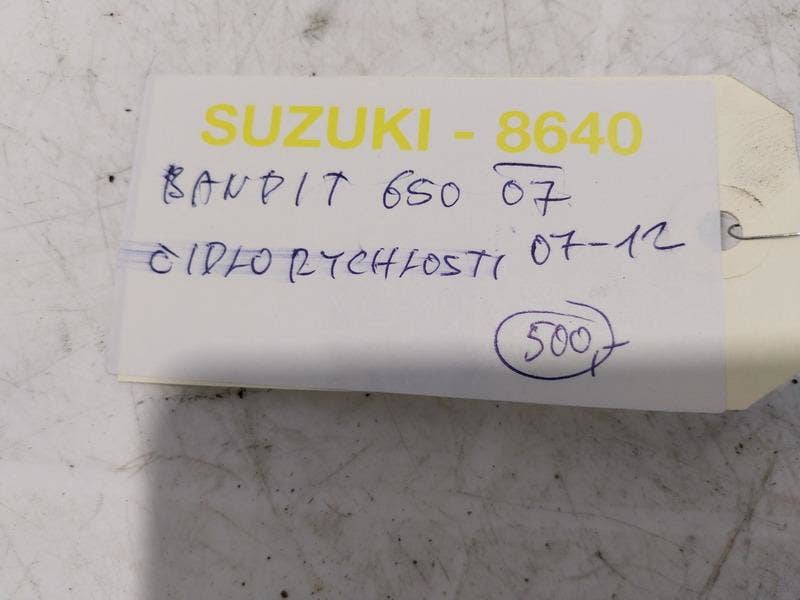 SUZUKI - 8640
BANDIT 650 07
ČIDLO RYCHLOSTI 07-12
500,-